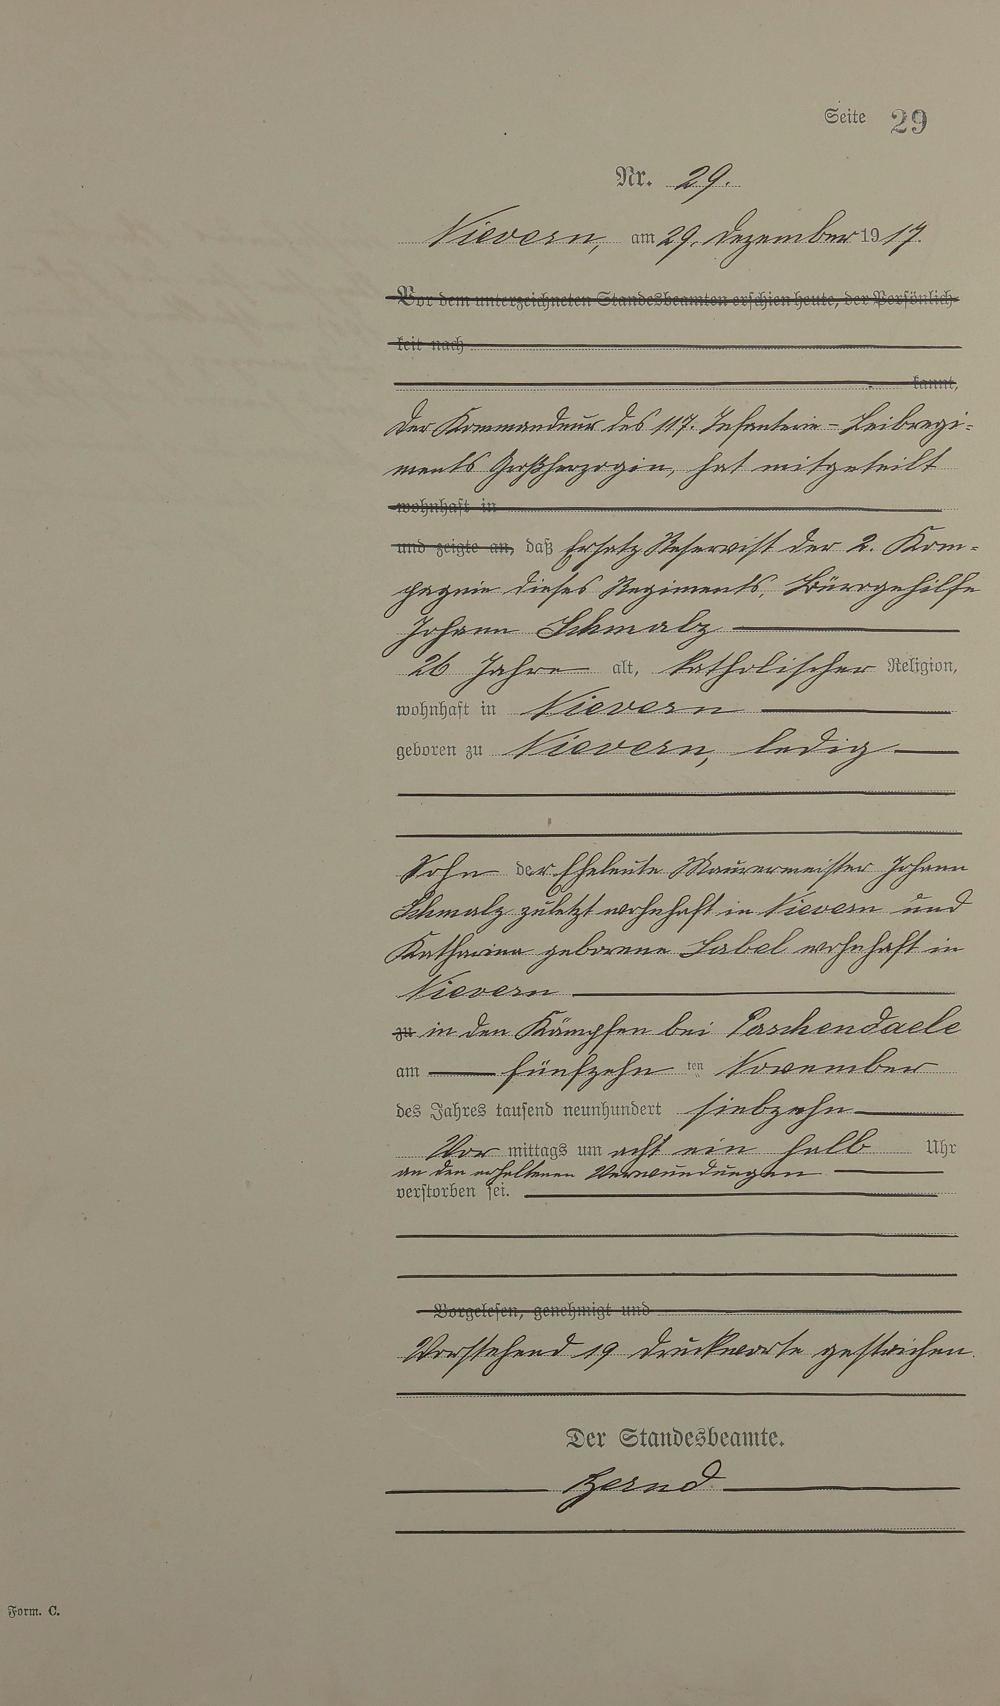 Seite 29
Nr. 29.
Nievern, am 29. Dezember 1917.
Vor dem unterzeichneten Standesbeamten erschien heute, der Persönlich-
keit nach
kannt,
Der Kommandeur des 117. Infanterie-Leibregi-
ments Großherzogin, hat mitgeteilt
wohnhaft in
und zeigte an, daß Ersatz Reservist der 2. Kom-
pagnie dieses Regiments, Bürogehilfe
Johann Schmalz
26 Jahre alt, katholischer Religion,
wohnhaft in Nievern
geboren zu Nievern, ledig
Sohn der Eheleute Maurermeister Johann
Schmalz zuletzt wohnhaft in Nievern und
Katharina geborene Sabel wohnhaft in
Nievern
zu in den Kämpfen bei Paschendaele
am fünfzehn ten November
des Jahres tausend neunhundert siebzehn
Vor mittags um acht ein halb Uhr
an den erhaltenen Verwundungen
verstorben sei.
Vorgelesen, genehmigt und
Vorstehend 19 Druckworte gestrichen.
Der Standesbeamte.
Form. C.